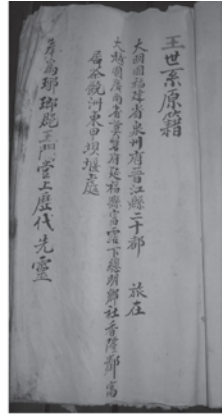 王世系原籍
大明國福建省泉州府晉江縣二十都 旅在
大越國廣南省奠磐府延福縣富霑下總明鄉社香隆鄰富
居茶饒洲東甲坝堰處
奉為瑯琊郡王門堂上歷代先靈